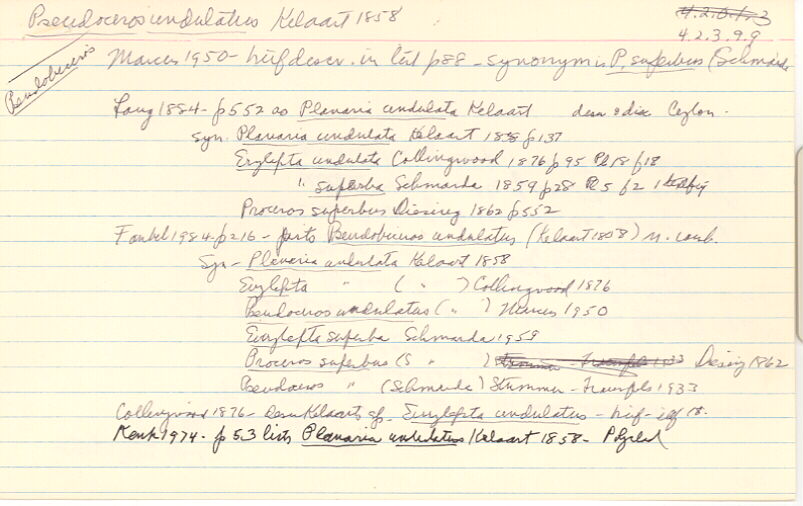 Pseudoceros undulatus Kelaart 1858
4.2.0.1.3
4.2.3.9.9
Pseudobiceros
Marcus 1950 - brief descr. in lit p88 - synonym is P. superbus (Schmarda
Lang 1884 - p552 as Planaria undulata Kelaart descr & disc Ceylon -
syn. Planaria undulata Kelaart 1858 p137
Eurylepta undulata Collingwood 1876 p95 Pl 18 f18
" superba Schmarda 1859 p28 Pl 5 f2 1 text fig
Proceros superbus Diesing 1862 p552
Faubel 1984 - p216 - puts Pseudobiceros undulatus (Kelaart 1858) n. comb.
Syn - Planaria undulata Kelaart 1858
Eurylepta " ( " ) Collingwood 1876
Pseudoceros undulatus ( " ) Marcus 1950
Eurylepta superba Schmarda 1959
Proceros superbus (S " ) Stummer-Traunfels 1933 Diesing 1862
Pseudoceros " (Schmarda) Stummer-Traunfels 1933
Collingwood 1876 - Kelaart's sp. Eurylepta undulatus - brief -
Kenk 1974 - p53 lists Planaria undulatus Kelaart 1858 - Polyclad